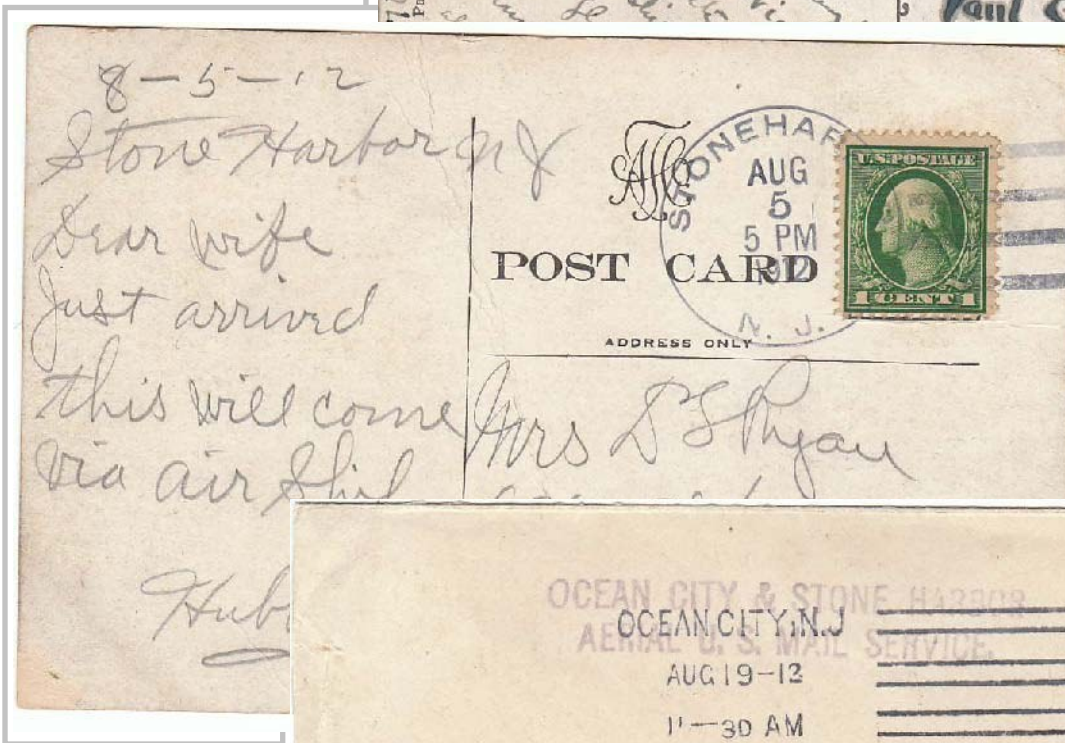 8-5-12
Stone Harbor N J
Dear wife
Just arrived
this will come
via air Ship
Hub
STONE HAR
AUG
5
5 PM
1912
N. J.
U.S. POSTAGE
1 CENT 1
POST CARD
ADDRESS ONLY
Mrs D S Ryan
OCEAN CITY & STONE HARBOR
AERIAL U. S. MAIL SERVICE.
OCEAN CITY, N.J
AUG 19-12
11-30 AM
Paul